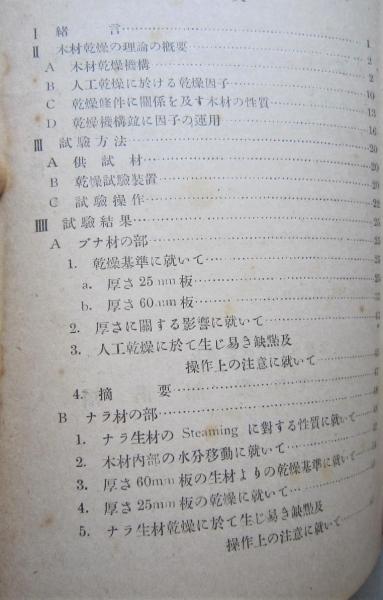 I 緒 言 1
II 木材乾燥の理論の概要 2
A 木材乾燥機構 2
B 人工乾燥に於ける乾燥因子 10
C 乾燥條件に關係を及す木材の性質 13
D 乾燥機構竝に因子の運用 16
III 試驗方法 20
A 供試材 20
B 乾燥試驗裝置 20
C 試驗操作 22
IIII 試驗結果 25
A ブナ材の部 25
1. 乾燥基準に就いて 25
a. 厚さ25mm板
b. 厚さ60mm板
2. 厚さに關する影響に就いて
3. 人工乾燥に於て生じ易き缺點及
操作上の注意に就いて
4. 摘 要
B ナラ材の部
1. ナラ生材の Steaming に對する性質に就いて
2. 木材內部の水分移動に就いて
3. 厚さ60mm板の生材よりの乾燥基準に就いて
4. 厚さ25mm板の乾燥に就いて
5. ナラ生材乾燥に於て生じ易き缺點及
操作上の注意に就いて